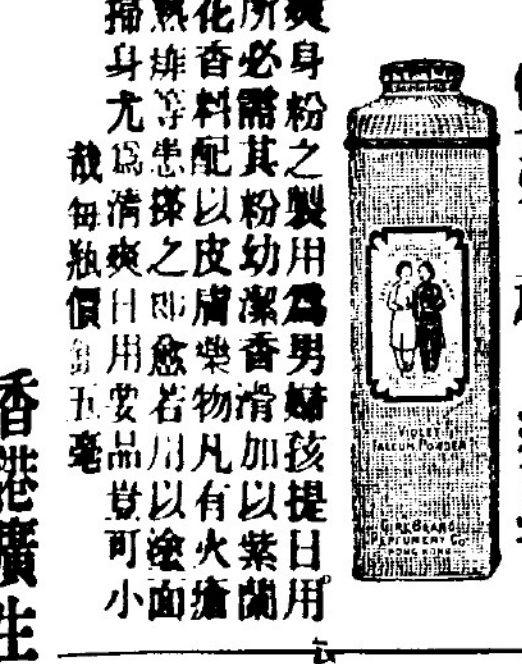 爽身粉之製用爲男婦孩提日用
所必需其粉幼潔香滑加以紫蘭
花香料配以皮膚藥物凡有火瘡
熱痱等患搽之即愈若用以塗面
掃身尤爲清爽日用要品豈可小
哉每瓶價銀五毫
香港廣生
VIOLET
TALCUM POWDER
GIRL BRAND
PERFUMERY Co
HONG KONG